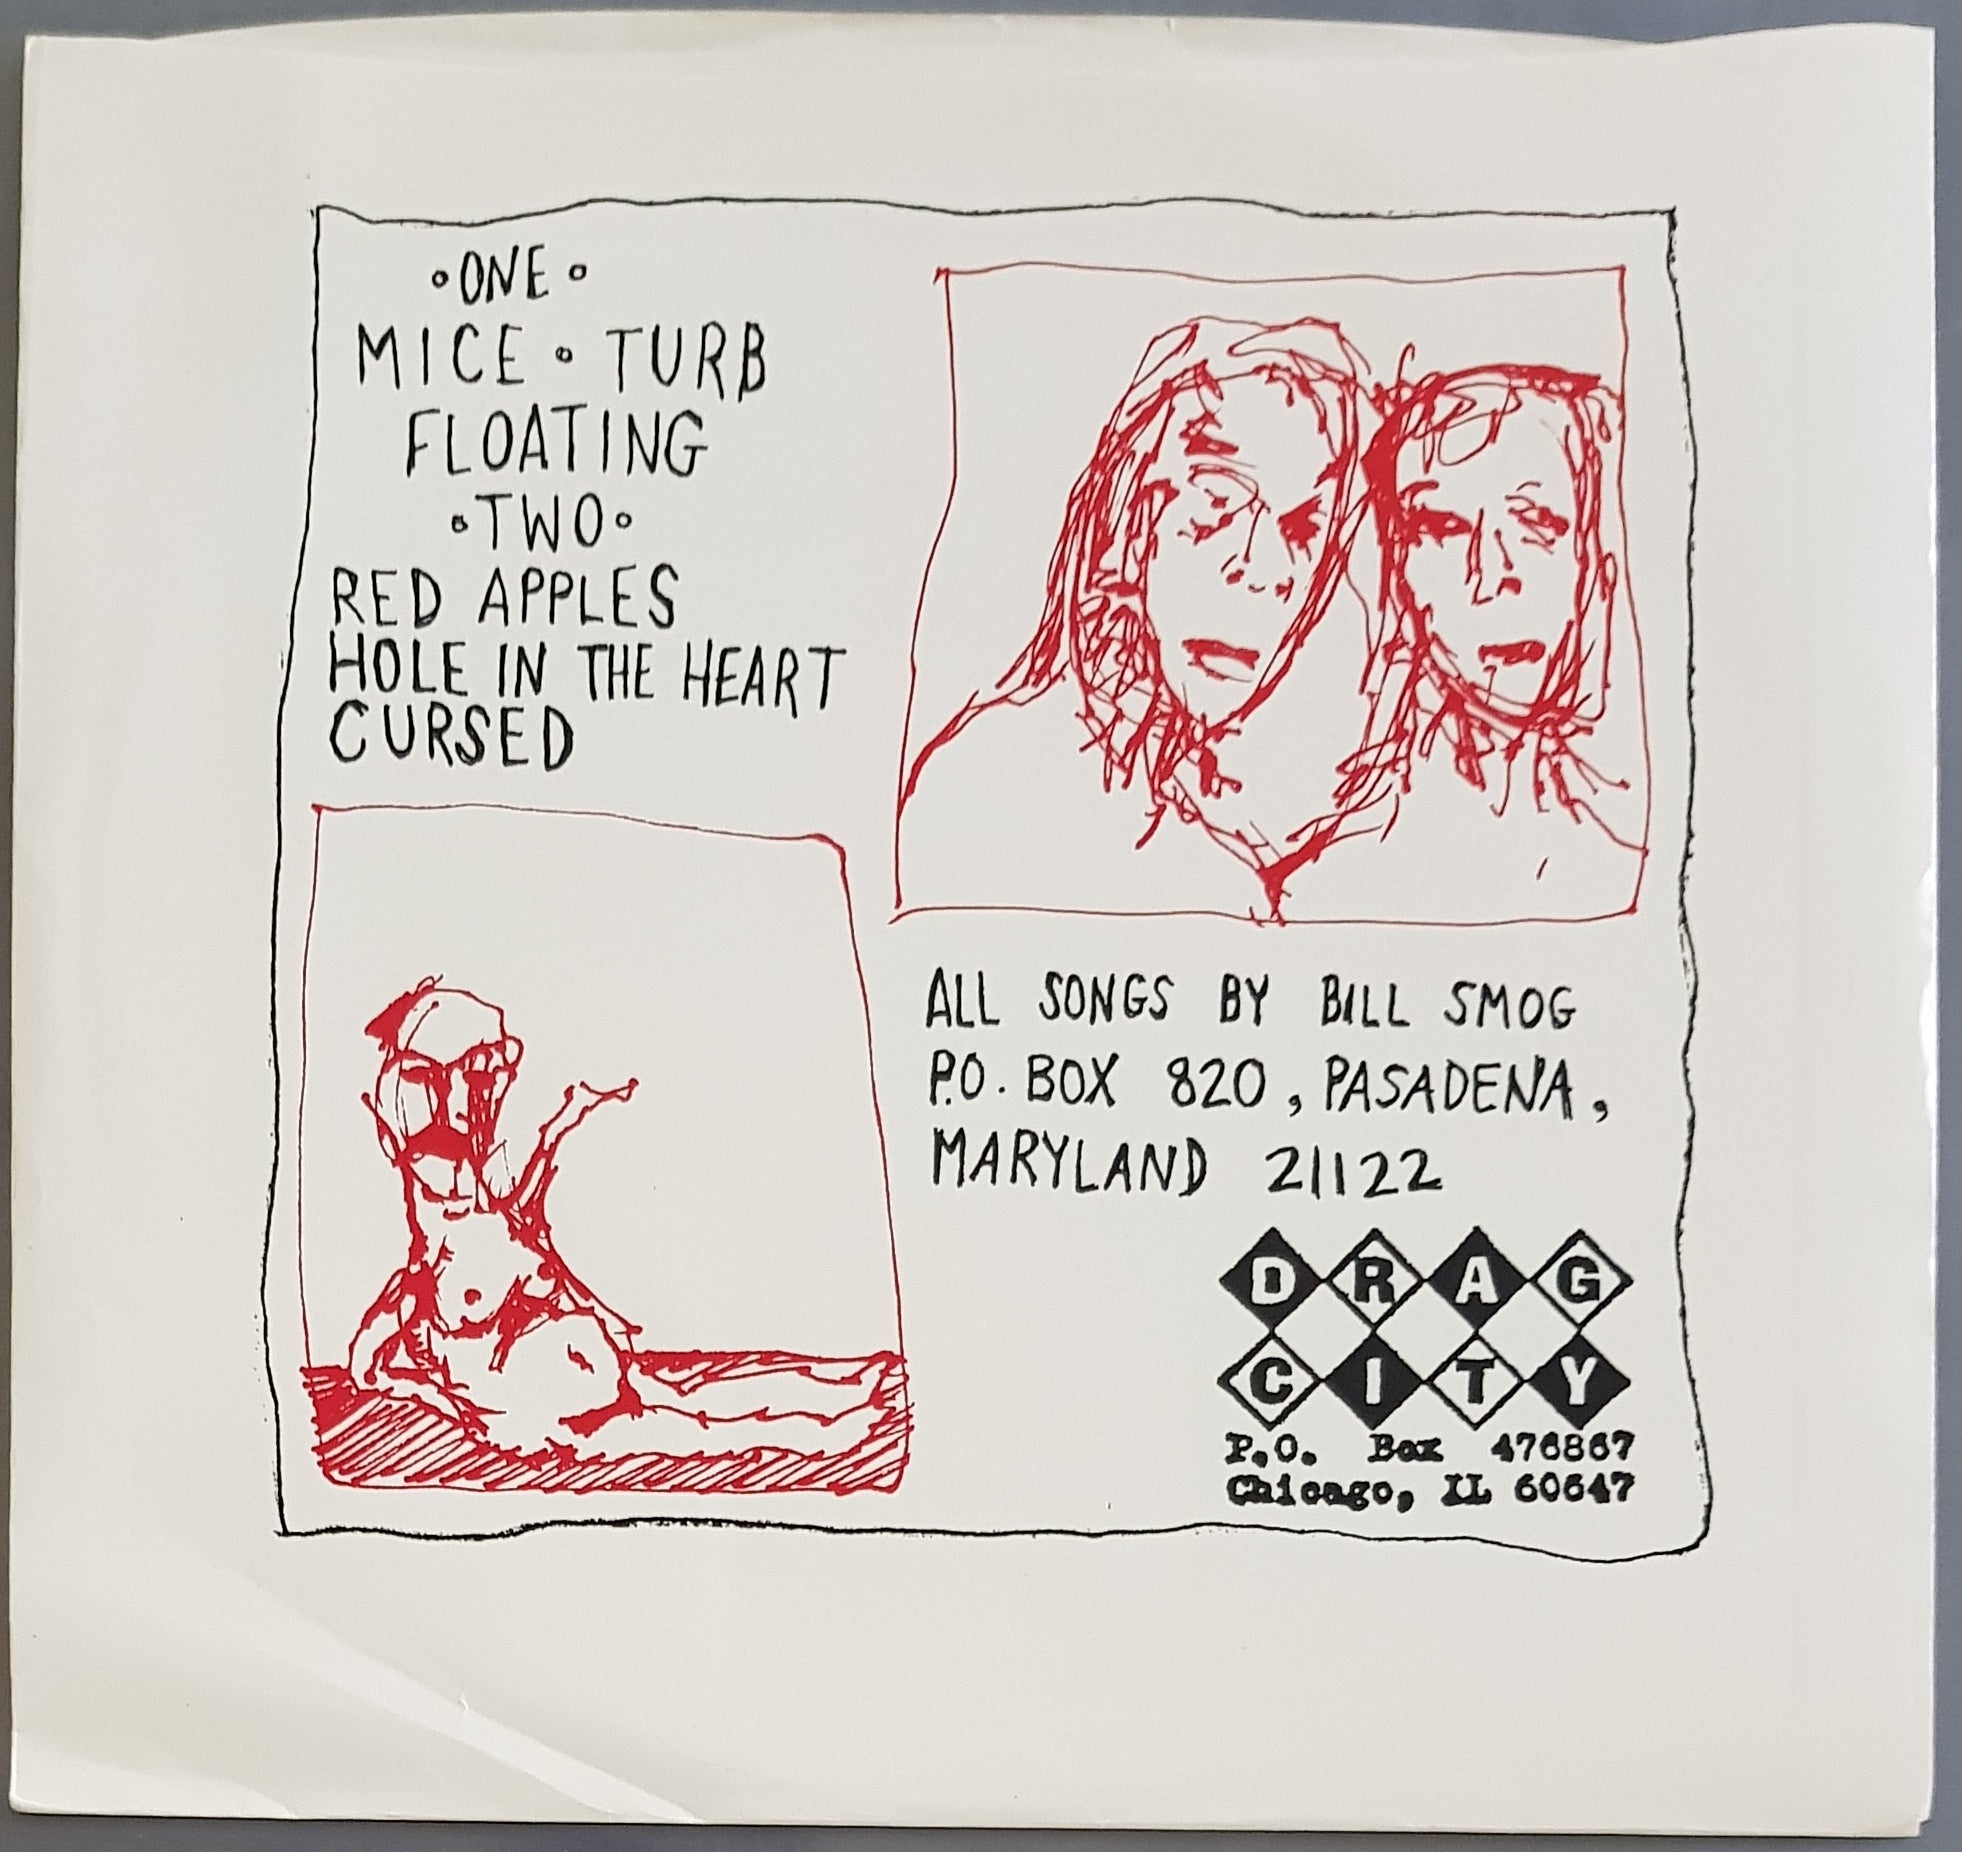 ◦ONE◦
MICE ◦ TURB
FLOATING
◦TWO◦
RED APPLES
HOLE IN THE HEART
CURSED
ALL SONGS BY BILL SMOG
P.O. BOX 820, PASADENA,
MARYLAND 21122
DRAG
CITY
P.O. Box 476867
Chicago, IL 60647